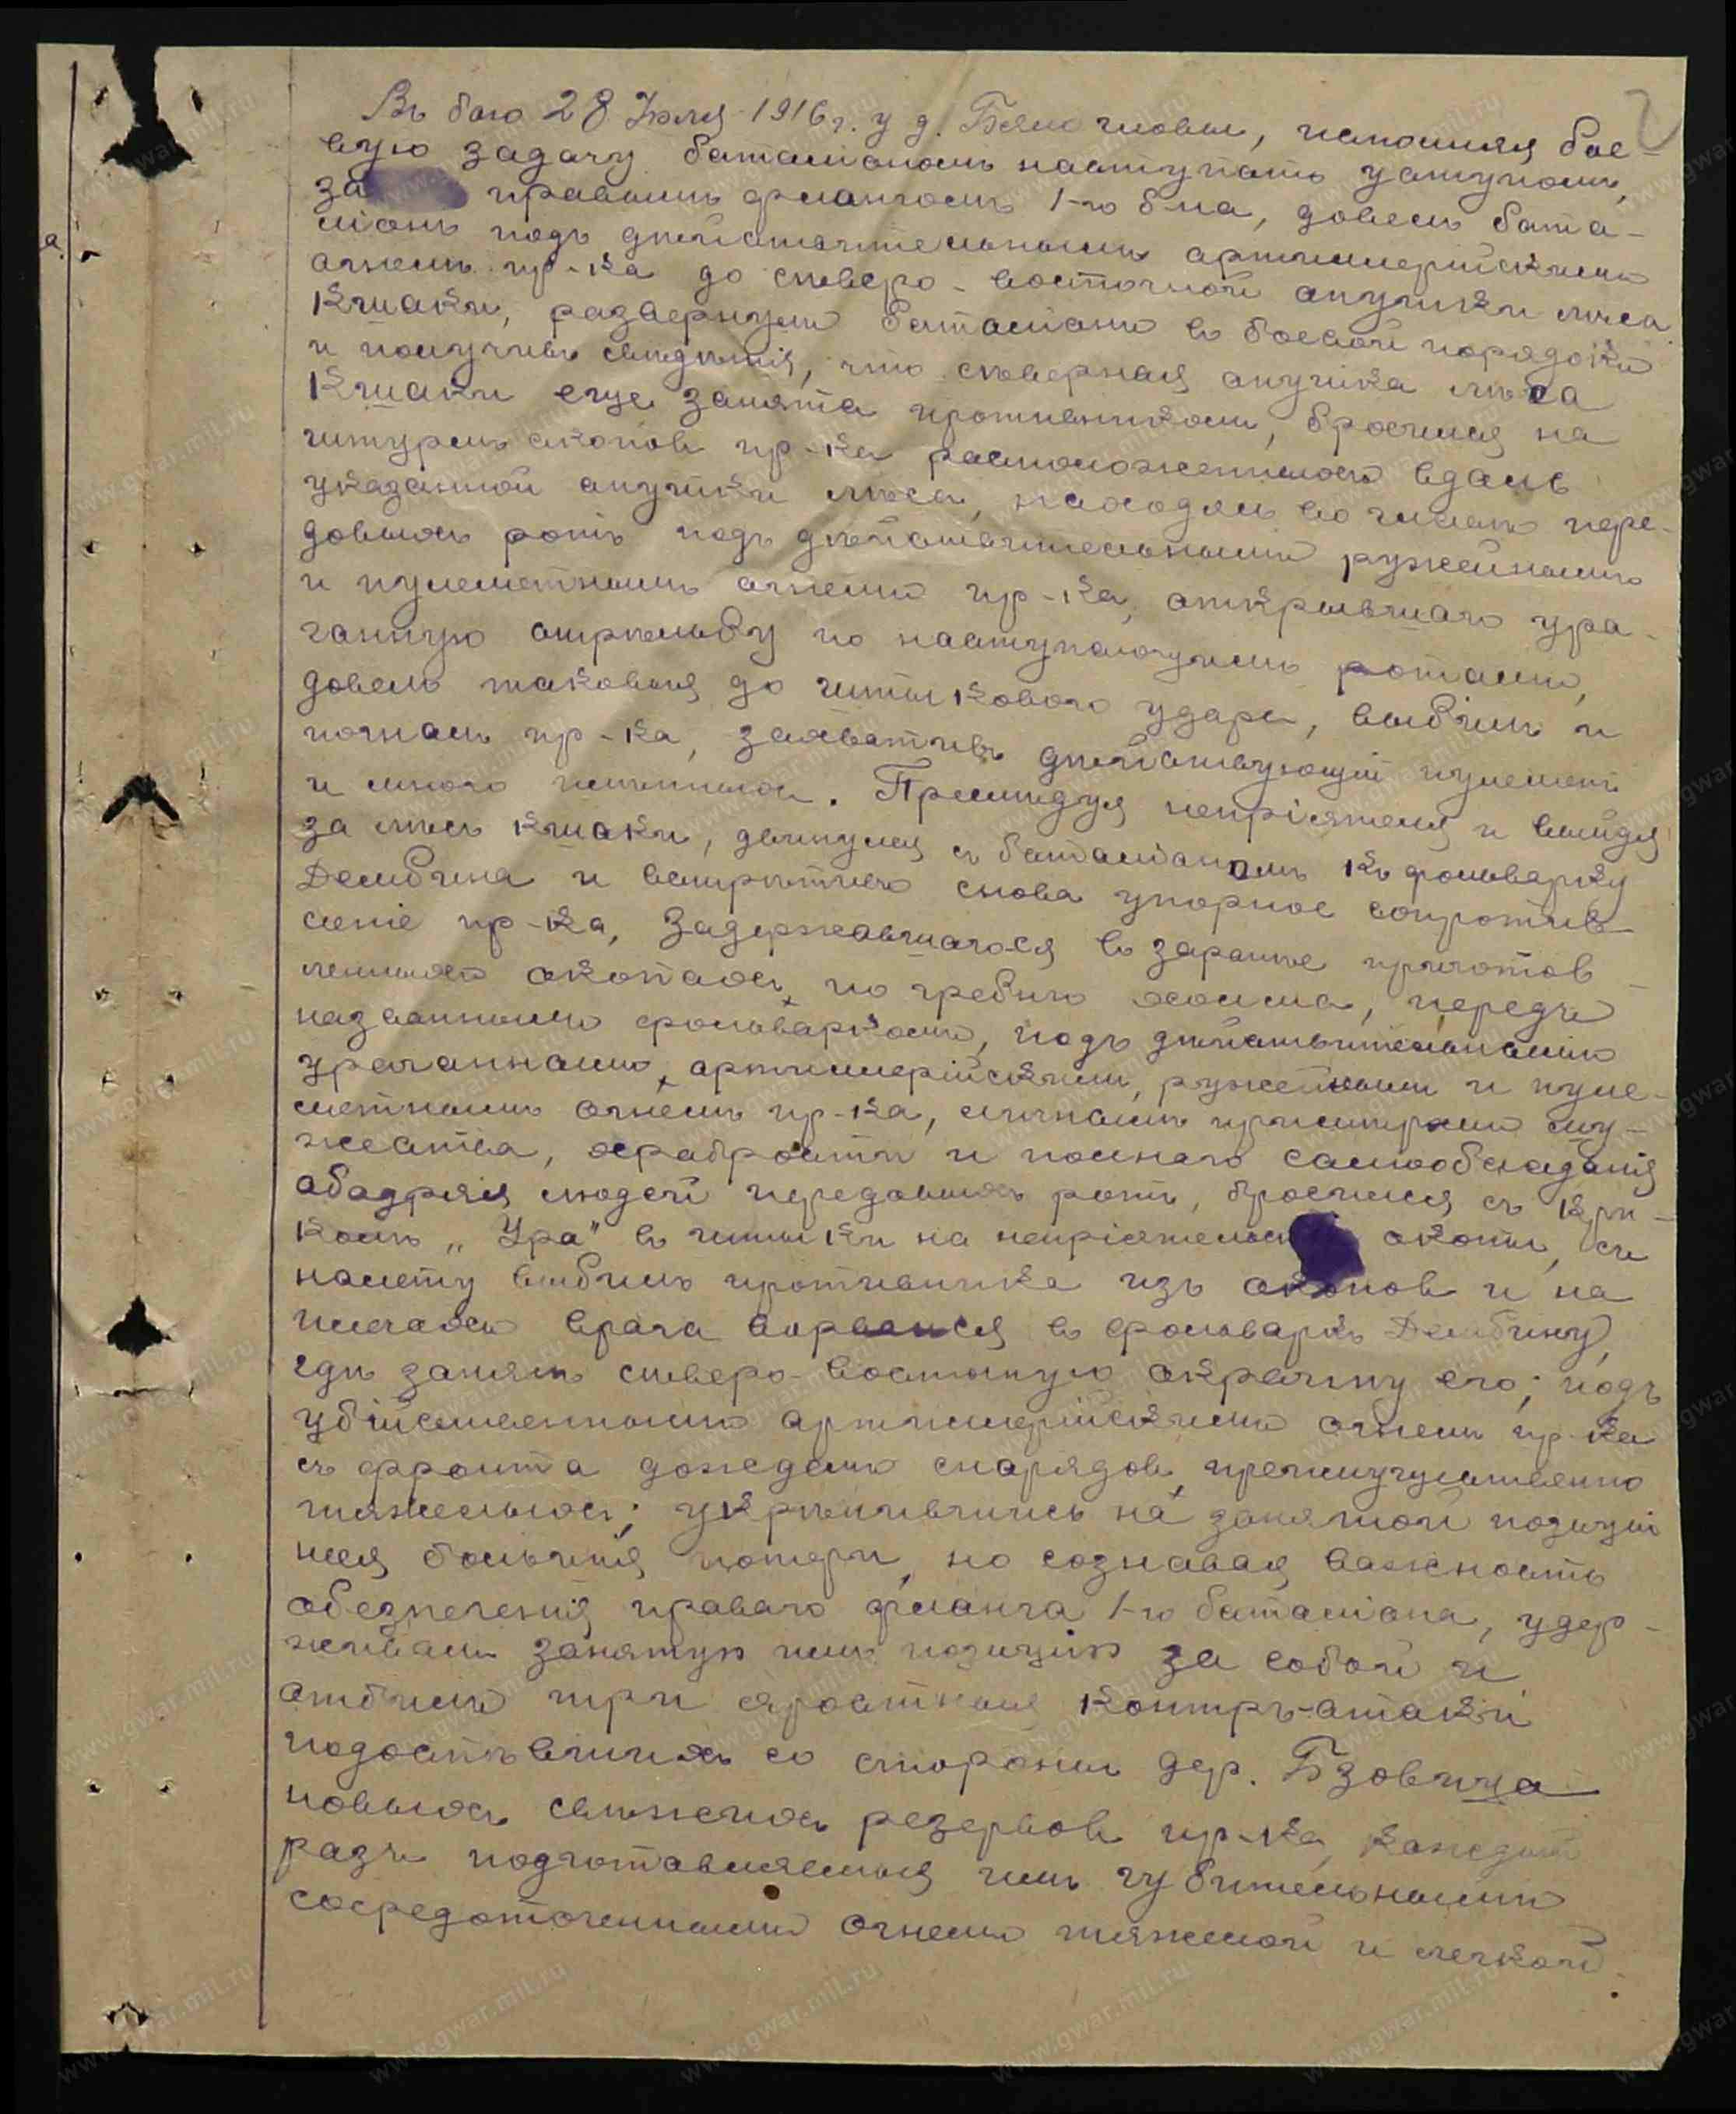 Въ бою 28 Іюля 1916 г. у д. Бяло гловы, исполняя бое-
вую задачу баталіономъ наступать уступомъ,
за правымъ флангомъ 1-го б-на, довелъ бата-
ліонъ подъ дѣйствительнымъ артиллерійскимъ
огнемъ пр-ка до сѣверо-восточной опушки лѣса
Кшаки, развернулъ баталіонъ в боевой порядокъ
и получивъ свѣдѣнія, что сѣверная опушка лѣса
Кшаки еще занята противникомъ, бросился на
штурмъ окоповъ пр-ка расположенныхъ вдоль
указанной опушки лѣса, находясь во главѣ пере-
довыхъ ротъ подъ дѣйствительнымъ ружейнымъ
и пулеметнымъ огнемъ пр-ка, открывшаго ура-
ганную стрѣльбу по наступающимъ ротамъ,
довелъ таковыя до штыкового удара, выбилъ и
погналъ пр-ка, захвативъ дѣйствующій пулеметъ
и много плѣнныхъ. Преслѣдуя непріятеля и выйдя
за лѣсъ Кшаки, двинулся съ баталіономъ къ фольварку
Дембина и встрѣтивъ снова упорное сопротив-
леніе пр-ка, задержавшагося в заранѣе приготов-
ленныхъ окопахъ, по гребню холма, передъ
названнымъ фольваркомъ, подъ дѣйствительнымъ
ураганнымъ, артиллерійскимъ, ружейнымъ и пуле-
метнымъ огнемъ пр-ка, личнымъ примѣромъ му-
жества, храбрости и полнаго самообладанія
ободряя людей передовыхъ ротъ, бросился съ кри-
комъ „Ура" в штыки на непріятельск окопы, съ
налету выбилъ противника изъ окоповъ и на
плечахъ врага ворвался в фольваркъ Дембину,
гдѣ занялъ сѣверо-восточную окраину его; подъ
убійственнымъ артиллерійскимъ огнемъ пр-ка
съ фронта дождемъ снарядовъ, преимущественно
тяжелыхъ; укрѣпившись на занятой позиціи
неся большія потери, но сознавая важность
обезпеченія праваго фланга 1-го баталіона, удер-
живалъ занятую имъ позицію за собой и
отбилъ три яростныя контръ-атаки
подоспѣвшихъ со стороны дер. Бзовица
новыхъ свѣжихъ резервовъ пр-ка, каждый
разъ подготавляемыя имъ губительнымъ
сосредоточеннымъ огнемъ тяжелой и легкой